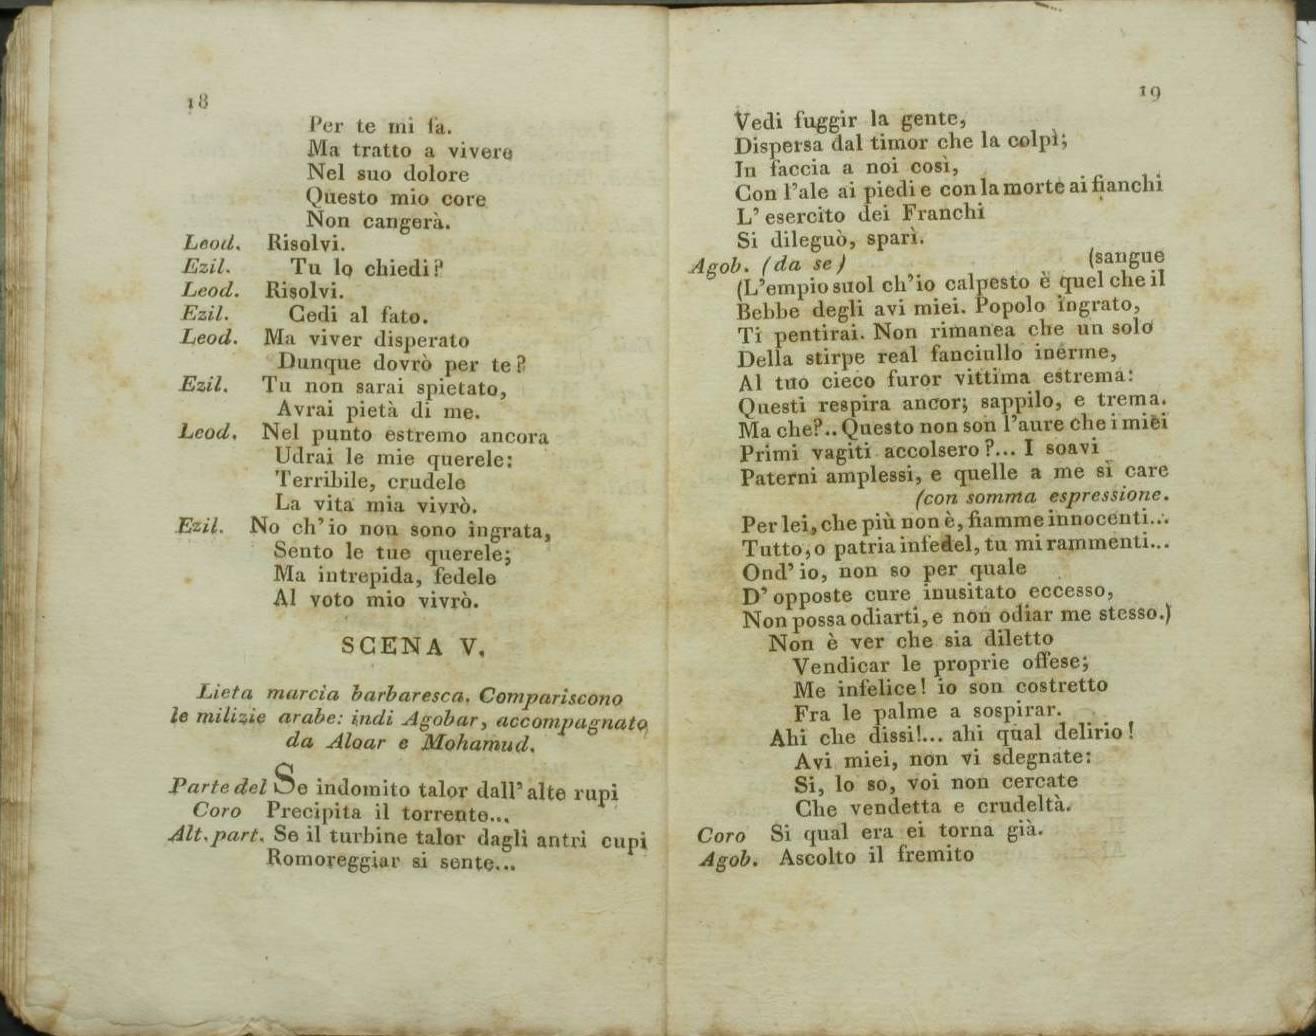 18
Per te mi fa.
Ma tratto a vivere
Nel suo dolore
Questo mio core
Non cangerà.
Leod. Risolvi.
Ezil. Tu lo chiedi?
Leod. Risolvi.
Ezil. Cedi al fato.
Leod. Ma viver disperato
Dunque dovrò per te?
Ezil. Tu non sarai spietato,
Avrai pietà di me.
Leod. Nel punto estremo ancora
Udrai le mie querele:
Terribile, crudele
La vita mia vivrò.
Ezil. No ch' io non sono ingrata,
Sento le tue querele;
Ma intrepida, fedele
Al voto mio vivrò.
SCENA V.
Lieta marcia barbaresca. Compariscono
le milizie arabe: indi Agobar, accompagnato
da Aloar e Mohamud.
Parte del Se indomito talor dall' alte rupi
Coro Precipita il torrente...
Alt. part. Se il turbine talor dagli antri cupi
Romoreggiar si sente...
19
Vedi fuggir la gente,
Dispersa dal timor che la colpì;
In faccia a noi così,
Con l'ale ai piedi e con la morte ai fianchi
L' esercito dei Franchi
Si dileguò, sparì.
Agob. (da se) (sangue
(L'empio suol ch'io calpesto è quel che il
Bebbe degli avi miei. Popolo ingrato,
Ti pentirai. Non rimanea che un solo
Della stirpe real fanciullo inerme,
Al tuo cieco furor vittima estrema:
Questi respira ancor; sappilo, e trema.
Ma che?.. Questo non son l'aure che i miei
Primi vagiti accolsero?... I soavi
Paterni amplessi, e quelle a me sì care
(con somma espressione.
Per lei, che più non è, fiamme innocenti...
Tutto, o patria infedel, tu mi rammenti...
Ond' io, non so per quale
D' opposte cure inusitato eccesso,
Non possa odiarti, e non odiar me stesso.)
Non è ver che sia diletto
Vendicar le proprie offese;
Me infelice! io son costretto
Fra le palme a sospirar.
Ahi che dissi!... ahi qual delirio!
Avi miei, non vi sdegnate:
Si, lo so, voi non cercate
Che vendetta e crudeltà.
Coro Si qual era ei torna già.
Agob. Ascolto il fremito